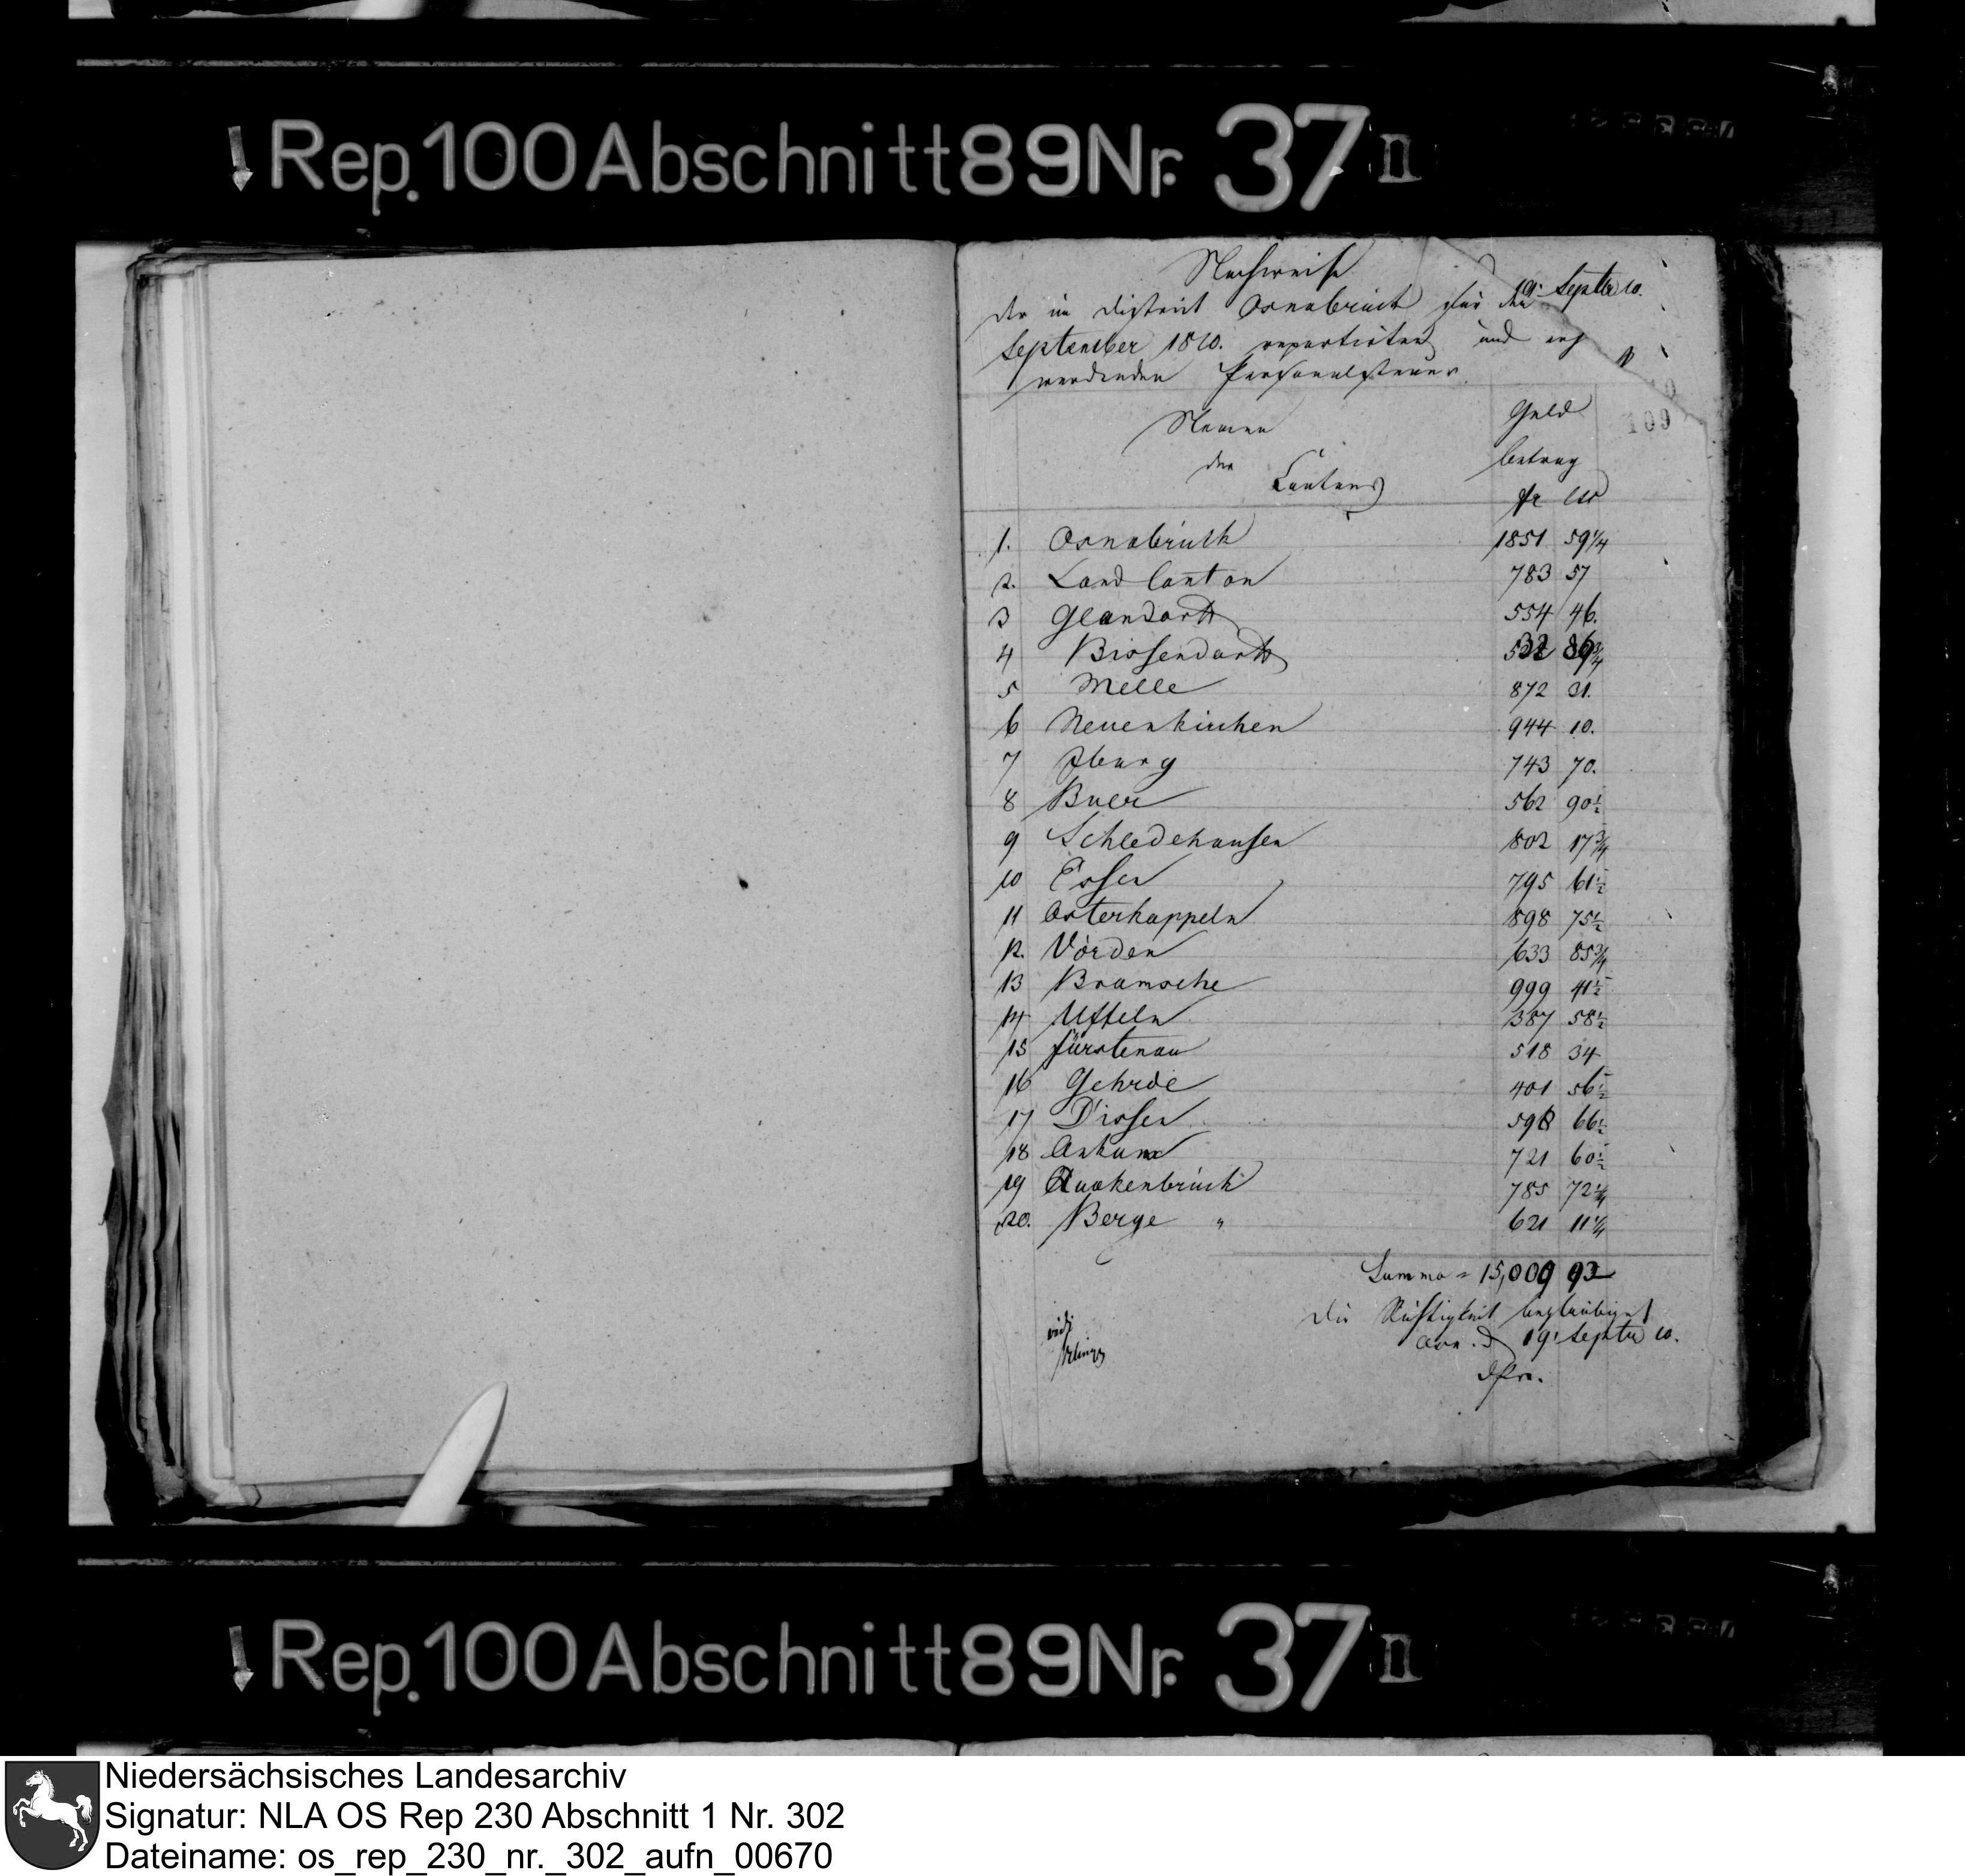 Rep. 100 Abschnitt 89 Nr. 37 II
Nachweise
19t Septbr 10.
der im District Osnabrück für den
September 1810. repartirten und
werdenden Personalsteuer
109
Namen
der
Cantons
Geld
betrag
fr cts
1. Osnabrück 1851 59¼
2. Land Canton 783 57
3 Glandorff 554 46.
4 Bissendorff 532 86¾
5 Melle 872 31.
6 Neuenkirchen 944 10.
7 Iburg 743 70.
8 Buer 562 90½
9 Schledehausen 802 17¾
10 Essen 795 61½
11 Osterkappeln 898 75½
12. Vörden 633 85¾
13 Bramsche 999 41½
14 Uffeln 387 58½
15 Fürstenau 518 34
16 Gehrde 401 56½
17 Dissen 598 66½
18 Ankum 721 60½
19 Quakenbrück 785 72¼
20. Berge " 621 11¼
Summa = 15,009 93
Die Richtigkeit beglaubigt
Osn. d 19t Septbr 10.
vidi